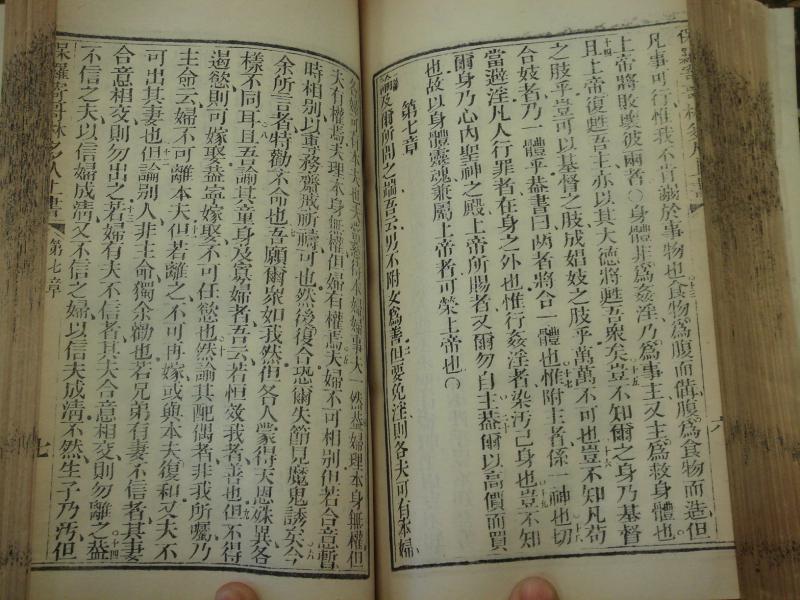 凡事可行惟我不肯誠於事物也食物爲腹而備腹爲食物而造但
上帝將敗壞彼兩者○身體非爲姦淫乃爲事主又主爲救身體也
十四
且上帝復甦吾主亦以其大德將甦吾衆矣豈不知爾之身乃基督
之肢乎豈可以基督之肢成娼妓之肢乎萬萬不可也豈不知凡苟
合妓者乃一體乎蓋書曰兩者將合一體也惟附主者係一神也切
當避淫凡人行罪者在身之外也惟行姦淫者染汚己身也豈不知
爾身乃心內聖神之殿上帝所賜者又爾勿自主蓋爾以高價而買
也故以身體靈魂兼屬上帝者可榮上帝也○
第七章
及爾所問之端吾云男不附女爲善但要免淫則各夫可有本婦
六
各婦可有本夫也夫當
夫有權焉夫理本身無權但婦有權焉夫婦不可相別但若合意暫
時相別以專務齋戒祈禱可也然後復合恐爾失節見魔鬼誘矣今
余所言者特勸不命也吾願爾衆如我然但各人蒙得天恩姝異各
樣不同耳且吾論其童身及寡婦者吾云若恒效我者善也但不得
遏慾則可嫁娶蓋寧嫁娶不可任慾也然論其配偶者非我所囑乃
主命云婦不可離本夫但若離之不可再嫁或與本夫復和又夫不
可出其妻也但論別人非主命獨余勸也若兄弟有妻不信者其妻
合意相交則勿出之若婦有夫不信者其夫合意相交則勿離之蓋
不信之夫以信婦成清又不信之婦以信夫成清不然生子乃汚但
保羅寄哥林多人上書
第七章
七